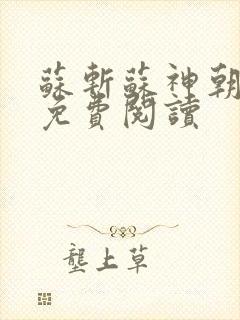 蘇斬蘇神朝
免費閱讀
壟上草